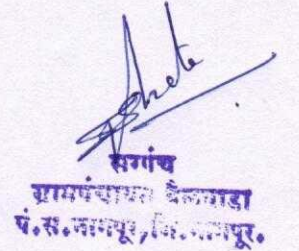 सरपंच
ग्रामपंचायत बेलवाडा
पं.स.नागपूर, जि.नागपूर.